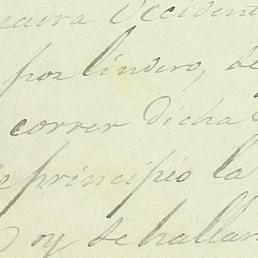 Occident
por lindero, de
correr dicha
principio la
y se hallan